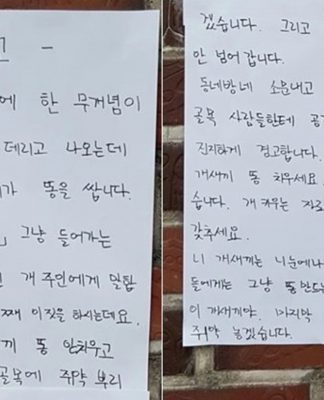 고 -
에 한 무개념이
데리고 나오는데
가 똥을 쌉니다.
그냥 들어가는
개 주인에게 말합
째 이짓을 하시는데요.
끼 똥 안치우고
골목에 쥐약 뿌리
겠습니다. 그리고
안 넘어 갑니다.
동네방네 소문내고
골목 사람들한테 공
진지하게 경고합니다.
개새끼 똥 치우세요
습니다. 개 키우는 자
갖추세요.
니 개새끼는 니 눈에나
들에게는 그냥 똥 만드는
이 개새게야. 마지막
쥐약 놓겠습니다.